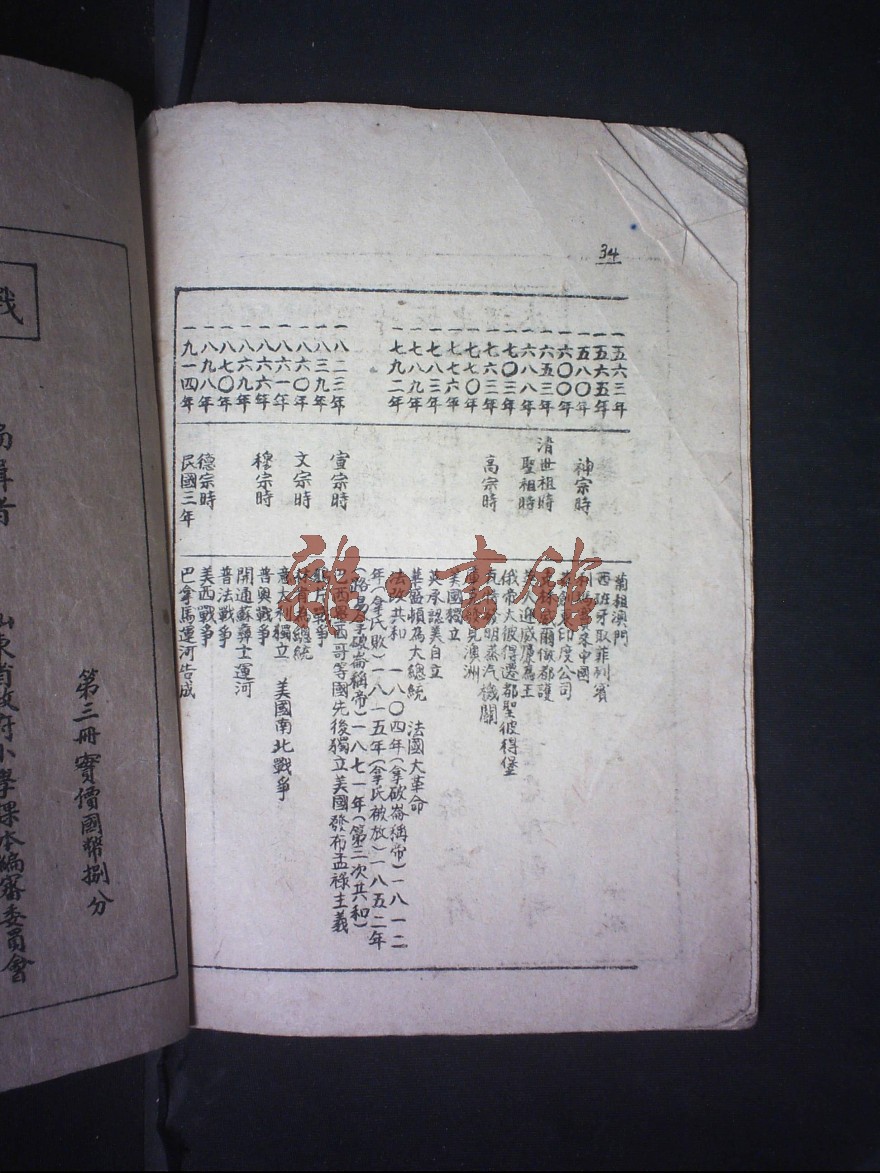 34
一五六三年 葡租澳門
一五六五年 西班牙取菲列賓
一五八〇年 神宗時 利瑪竇來中國
一六〇〇年 印度公司
一六五三年 清世祖時 克林威爾做都護
一六八八年 聖祖時 英人迎威廉為王
一七〇三年 俄帝大彼得遷都聖彼得堡
一七六三年 高宗時 瓦特發明蒸汽機關
一七七〇年 見澳洲
一七七六年 美國獨立
一七八三年 英承認美自立
一七八九年 華盛頓為大總統 法國大革命
一七九二年 法改共和 一八〇四年(拿破崙稱帝)一八一二
年(拿氏敗)一八一五年(拿氏被放)一八五二年
(路易拿破崙稱帝)一八七一年(第三次共和)
一八二三年 宣宗時 巴西墨西哥等國先後獨立美國發布孟祿主義
一八三九年 鴉片戰爭
一八六〇年 文宗時 林肯為總統
一八六一年 意大利獨立 美國南北戰爭
一八六六年 穆宗時 普奧戰爭
一八六九年 開通蘇彝士運河
一八七〇年 普法戰爭
一八九八年 德宗時 美西戰爭
一九一四年 民國三年 巴拿馬運河告成
第三冊實價國幣捌分
山東省政府小學課本編審委員會
戰
雜·書館